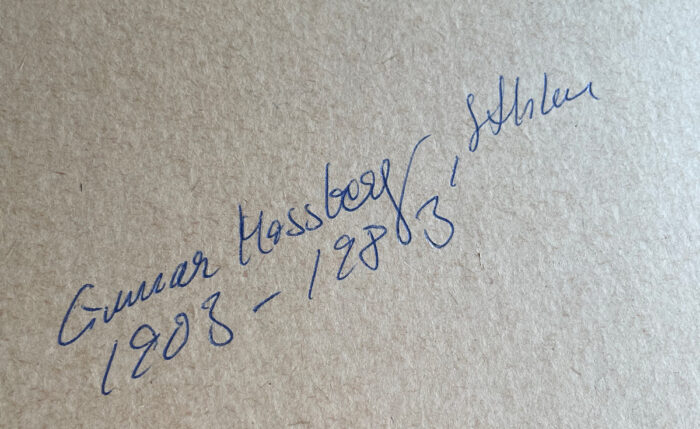 Gunnar Mossberg, Sthlm
1903 - 1983